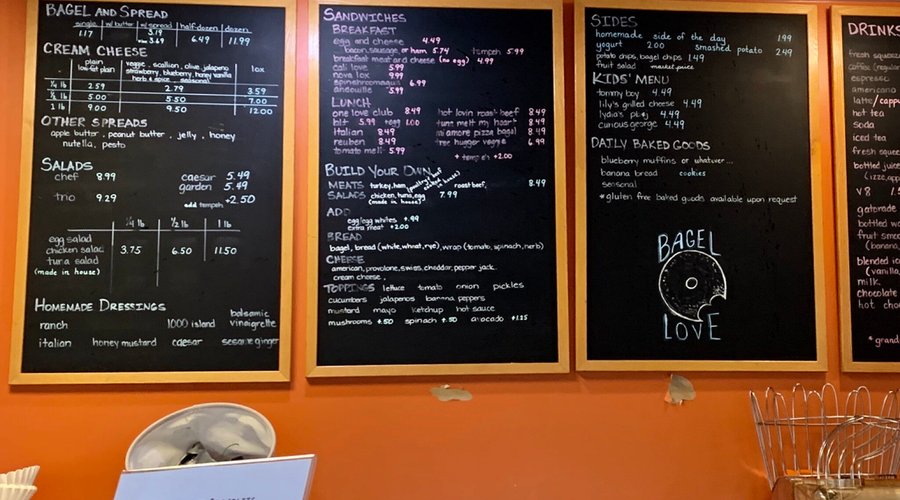 BAGEL AND SPREAD
single w/butter w/spread half-dozen dozen
1.17 3.19 6.49 11.99
3.69
CREAM CHEESE
plain veggie, scallion, olive, jalapeno lox
low-fat plain strawberry, blueberry, honey vanilla
herb & spice seasonal
1/4 lb 2.59 2.79 3.59
1/2 lb 5.00 5.50 7.00
1 lb 9.00 9.50 12.00
OTHER SPREADS
apple butter, peanut butter, jelly, honey
nutella, pesto
SALADS
chef 8.99 caesar 5.49
garden 5.49
trio 9.29 add tempeh +2.50
1/4 lb 1/2 lb 1 lb
egg salad
chicken salad 3.75 6.50 11.50
tuna salad
(made in house)
HOMEMADE DRESSINGS
ranch 1000 island balsamic vinaigrette
italian honey mustard caesar sesame ginger
SANDWICHES
BREAKFAST
egg and cheese 4.49
bacon, sausage, or ham 5.74 tempeh 5.99
breakfast meat and cheese (no egg) 4.99
cali love 5.99
nova lox 9.99
6.99
andouille 5.99
LUNCH
one love club 8.49 hot lovin roast beef 8.49
blt 5.99 +egg 1.00 tuna melt my heart 8.49
italian 8.49 mi amore pizza bagel 8.49
reuben 8.49 tree hugger veggie 6.99
tomato melt 5.99
+ tempeh +2.00
BUILD YOUR OWN
MEATS turkey, ham, roast beef, 8.49
SALADS chicken, tuna, egg 7.99
(made in house)
ADD
egg/egg whites +.99
extra meat +2.00
BREAD
bagel, bread (white, wheat, rye), wrap (tomato, spinach, herb)
CHEESE
american, provolone, swiss, cheddar, pepper jack
cream cheese
TOPPINGS lettuce tomato onion pickles
cucumbers jalapenos banana peppers
mustard mayo ketchup hot sauce
mushrooms +.50 spinach +.50 avocado +1.25
SIDES
homemade side of the day 1.99
yogurt 2.00 smashed potato 2.49
potato chips, bagel chips 1.49
fruit salad market price
KIDS' MENU
tommy boy 4.49
lily's grilled cheese 4.49
lydia's pb&j 4.49
curious george 4.49
DAILY BAKED GOODS
blueberry muffins or whatever...
banana bread cookies
seasonal
*gluten free baked goods available upon request
BAGEL
LOVE
DRINKS
fresh squeeze
coffee (regular
espresso
americana
latte/cappu
hot tea
soda
iced tea
fresh squee
bottled juice
(izze, app
V8 1.5
gatorade
bottled wa
fruit smoo
(banana,
blended ic
(vanilla,
milk
chocolate
hot choc
*grand